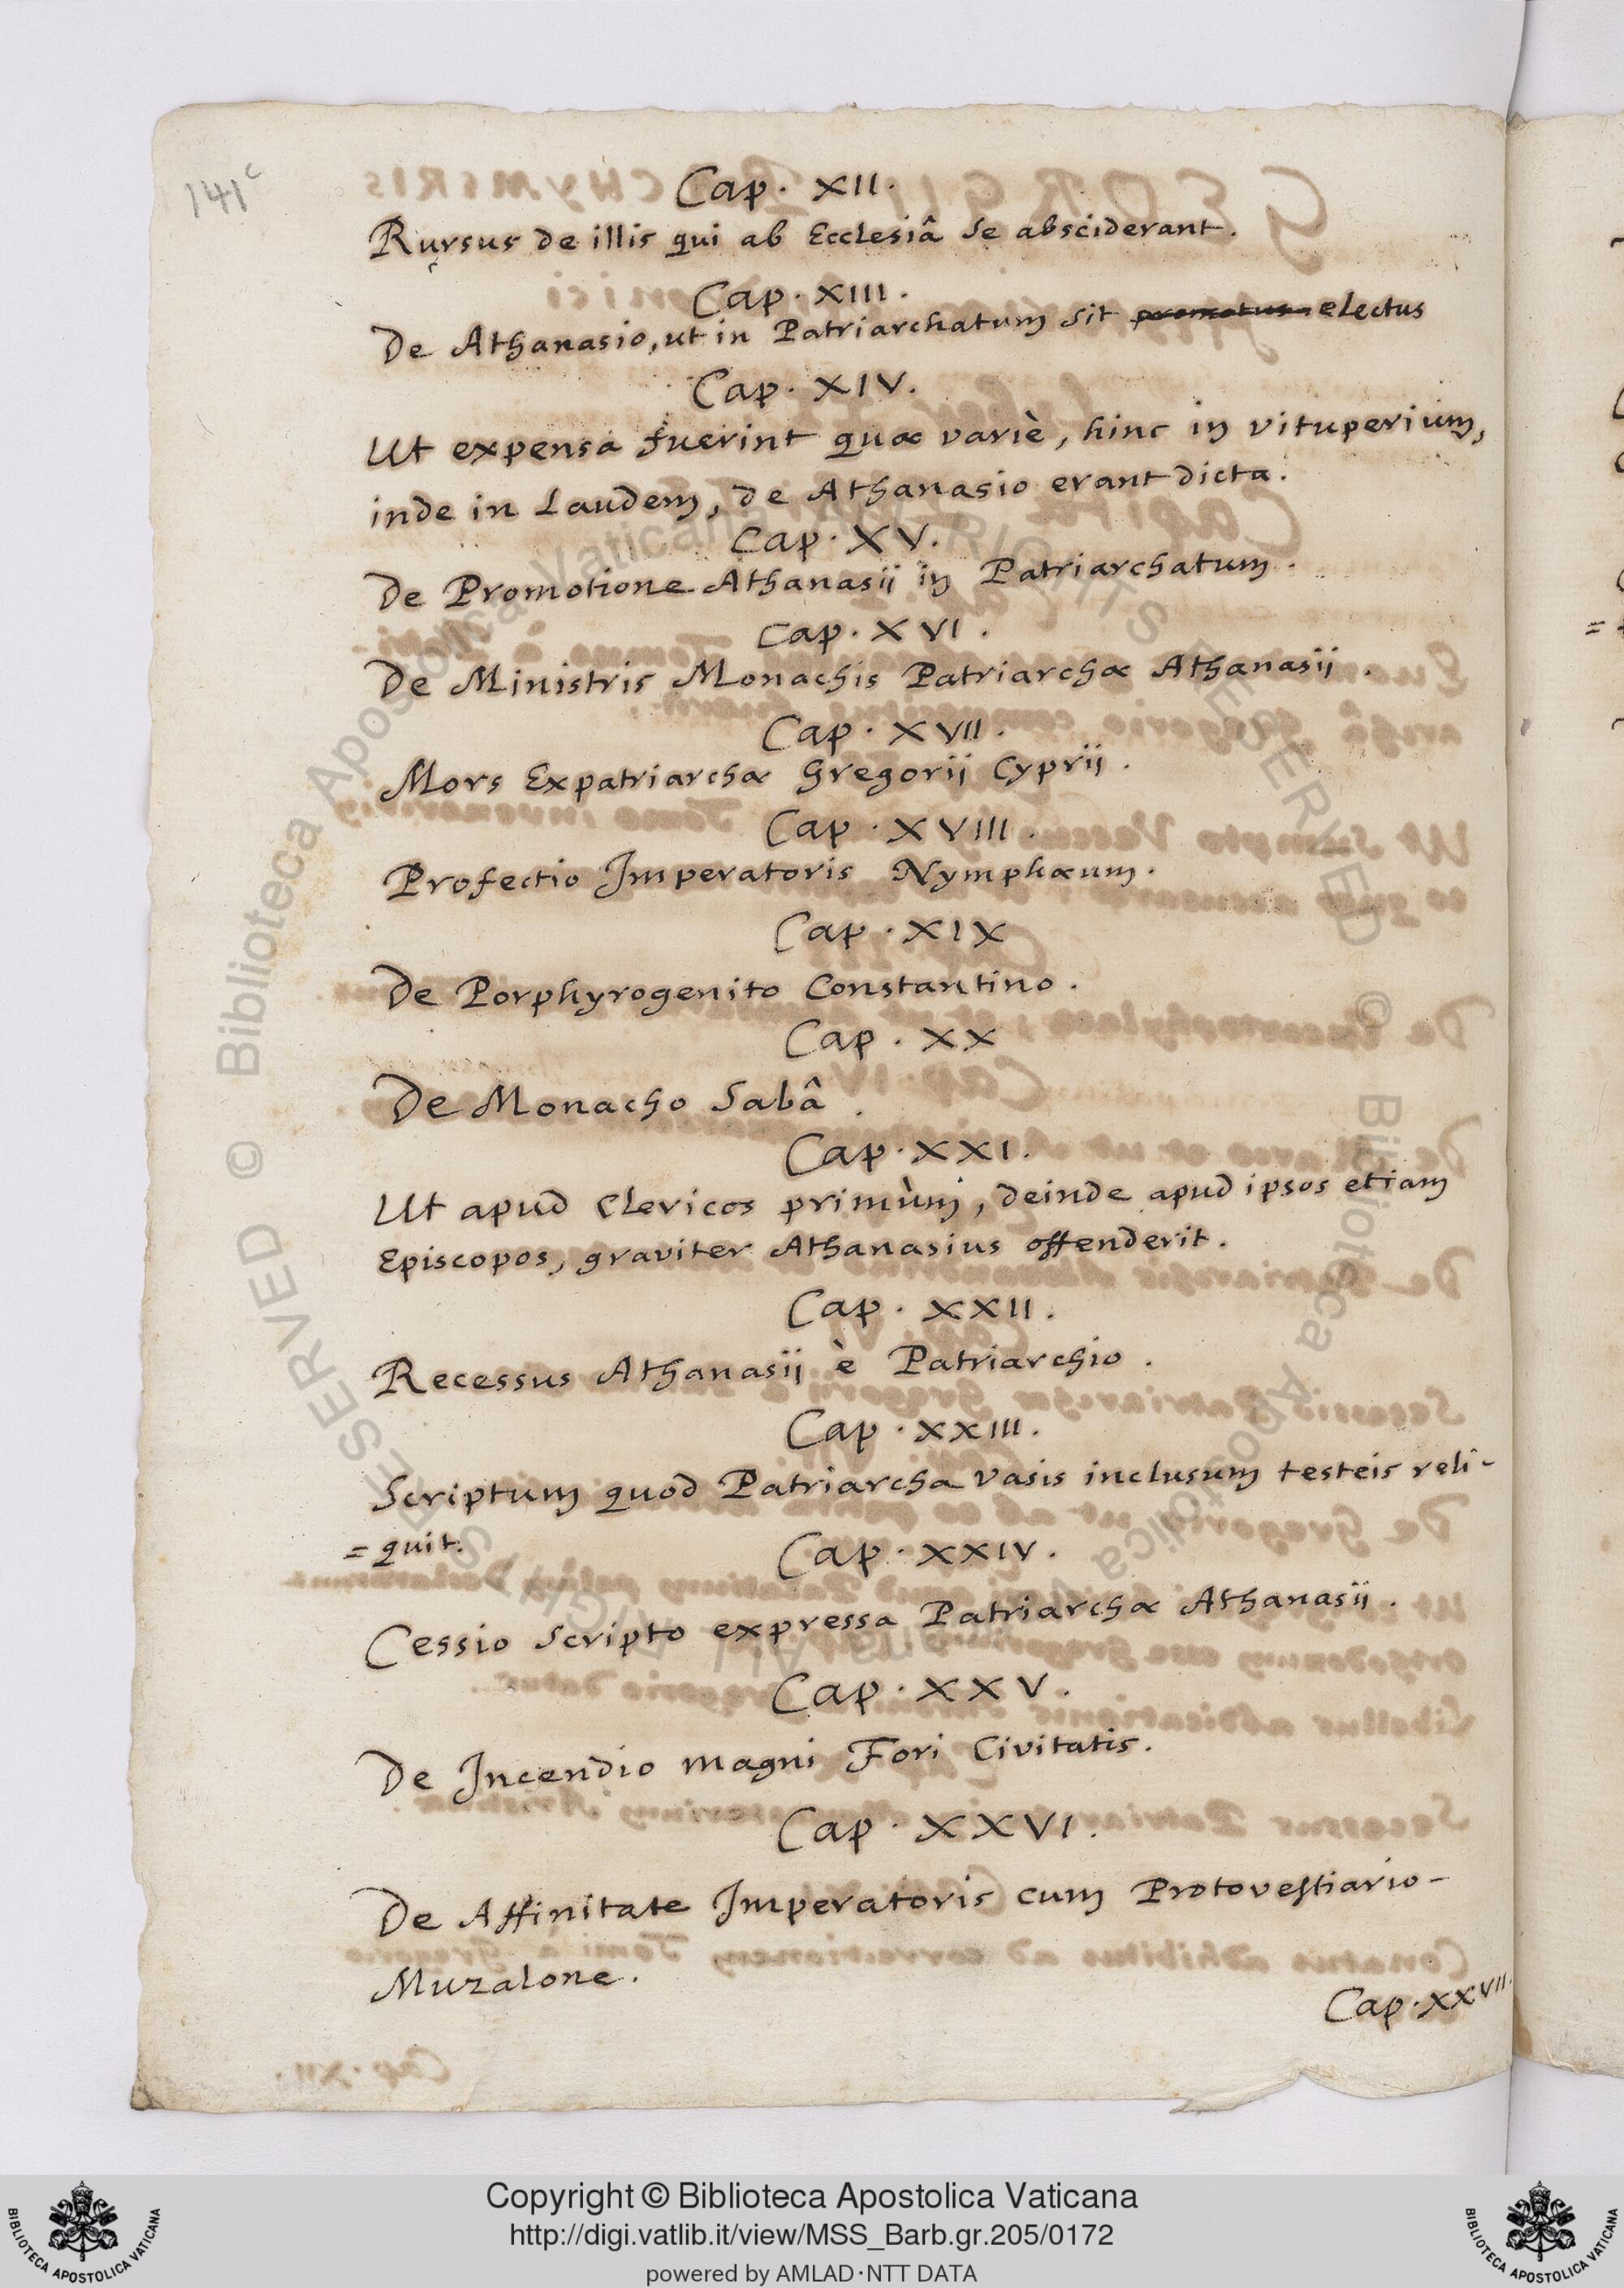 141c
Cap. XII.
Rursus de illis qui ab Ecclesiâ se absciderant.
Cap. XIII.
De Athanasio, ut in Patriarchatum sit promotus electus
Cap. XIV.
Ut expensa fuerint quæ variè, hinc in vituperium,
inde in Laudem, de Athanasio erant dicta.
Cap. XV.
De Promotione Athanasii in Patriarchatum.
Cap. XVI.
De Ministris Monachis Patriarchæ Athanasii.
Cap. XVII.
Mors Expatriarchæ Gregorii Cyprii.
Cap. XVIII.
Profectio Imperatoris Nymphæum.
Cap. XIX
De Porphyrogenito Constantino.
Cap. XX
De Monacho Sabâ.
Cap. XXI.
Ut apud Clericos primùm, deinde apud ipsos etiam
Episcopos, graviter Athanasius offenderit.
Cap. XXII.
Recessus Athanasii è Patriarchio.
Cap. XXIII.
Scriptum quod Patriarcha vasis inclusum testeis reli-
=quit.
Cap. XXIV.
Cessio scripto expressa Patriarchæ Athanasii.
Cap. XXV.
De Incendio magni Fori Civitatis.
Cap. XXVI.
De Affinitate Imperatoris cum Protovestiario-
Muzalone.
Cap. XXVII.
Copyright © Biblioteca Apostolica Vaticana
http://digi.vatlib.it/view/MSS_Barb.gr.205/0172
powered by AMLAD·NTT DATA
BIBLIOTECA APOSTOLICA VATICANA
BIBLIOTECA APOSTOLICA VATICANA